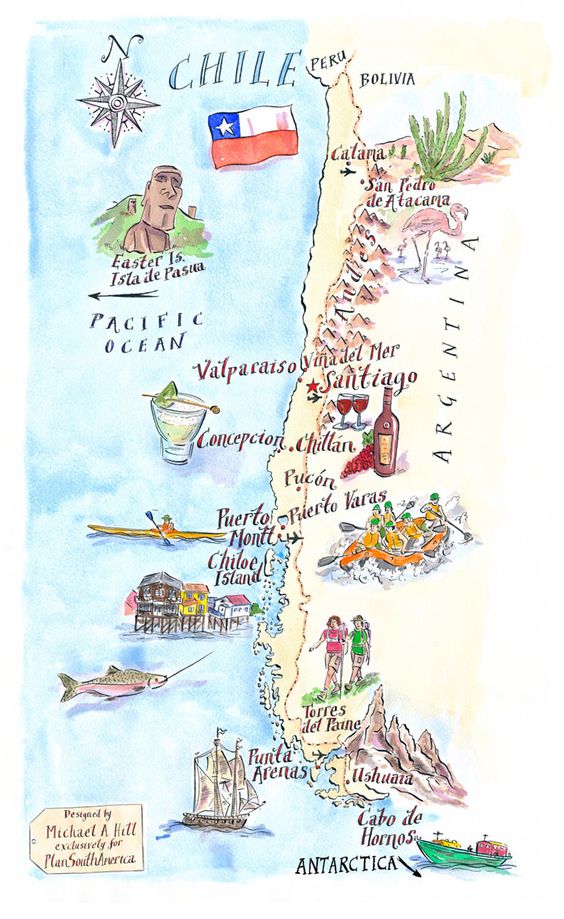 N
CHILE
PERU
BOLIVIA
Calama
San Pedro
de Atacama
Easter Is.
Isla de Pasua
Andes
ARGENTINA
PACIFIC
OCEAN
Valparaiso
Viña del Mer
Santiago
Concepcion
Chillán
Pucón
Puerto Varas
Puerto
Montt
Chiloe
Island
Torres
del Paine
Punta
Arenas
Ushuaia
Cabo de
Hornos
ANTARCTICA
Designed by
Michael A Hill
exclusively for
PlanSouthAmerica